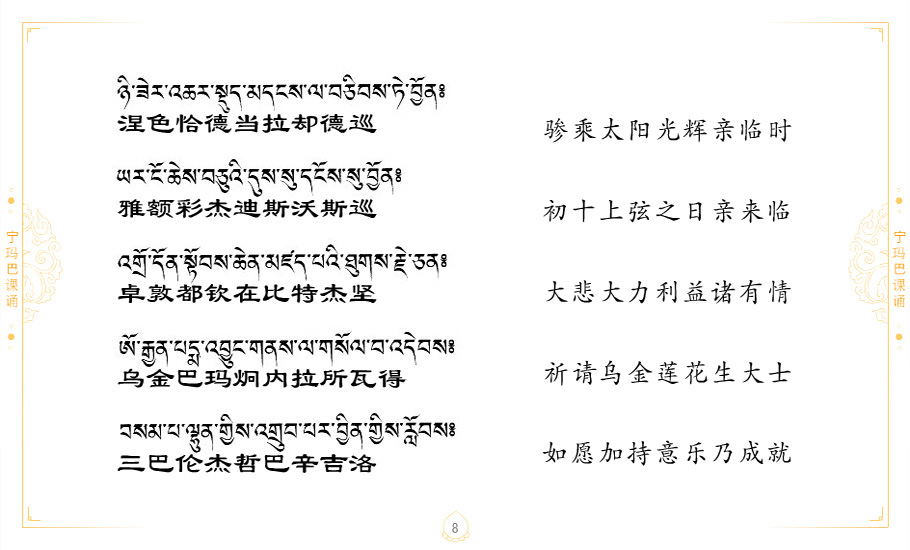 ཉི་ཟེར་འཆར་སྡུད་མདངས་ལ་བཅིབས་ཏེ་བྱོན༔
涅色恰德当拉却德巡
骖乘太阳光辉亲临时
ཡར་ངོ་ཆེས་བཅུའི་དུས་སུ་དངོས་སུ་བྱོན༔
雅额彩杰迪斯沃斯巡
初十上弦之日亲来临
འགྲོ་དོན་སྟོབས་ཆེན་མཛད་པའི་ཐུགས་རྗེ་ཅན༔
卓敦都钦在比特杰坚
大悲大力利益诸有情
ཨོ་རྒྱན་པདྨ་འབྱུང་གནས་ལ་གསོལ་བ་འདེབས༔
乌金巴玛炯内拉所瓦得
祈请乌金莲花生大士
བསམ་པ་ལྷུན་གྱིས་འགྲུབ་པར་བྱིན་གྱིས་རློབས༔
三巴伦杰哲巴辛吉洛
如愿加持意乐乃成就
宁玛巴课诵
宁玛巴课诵
8